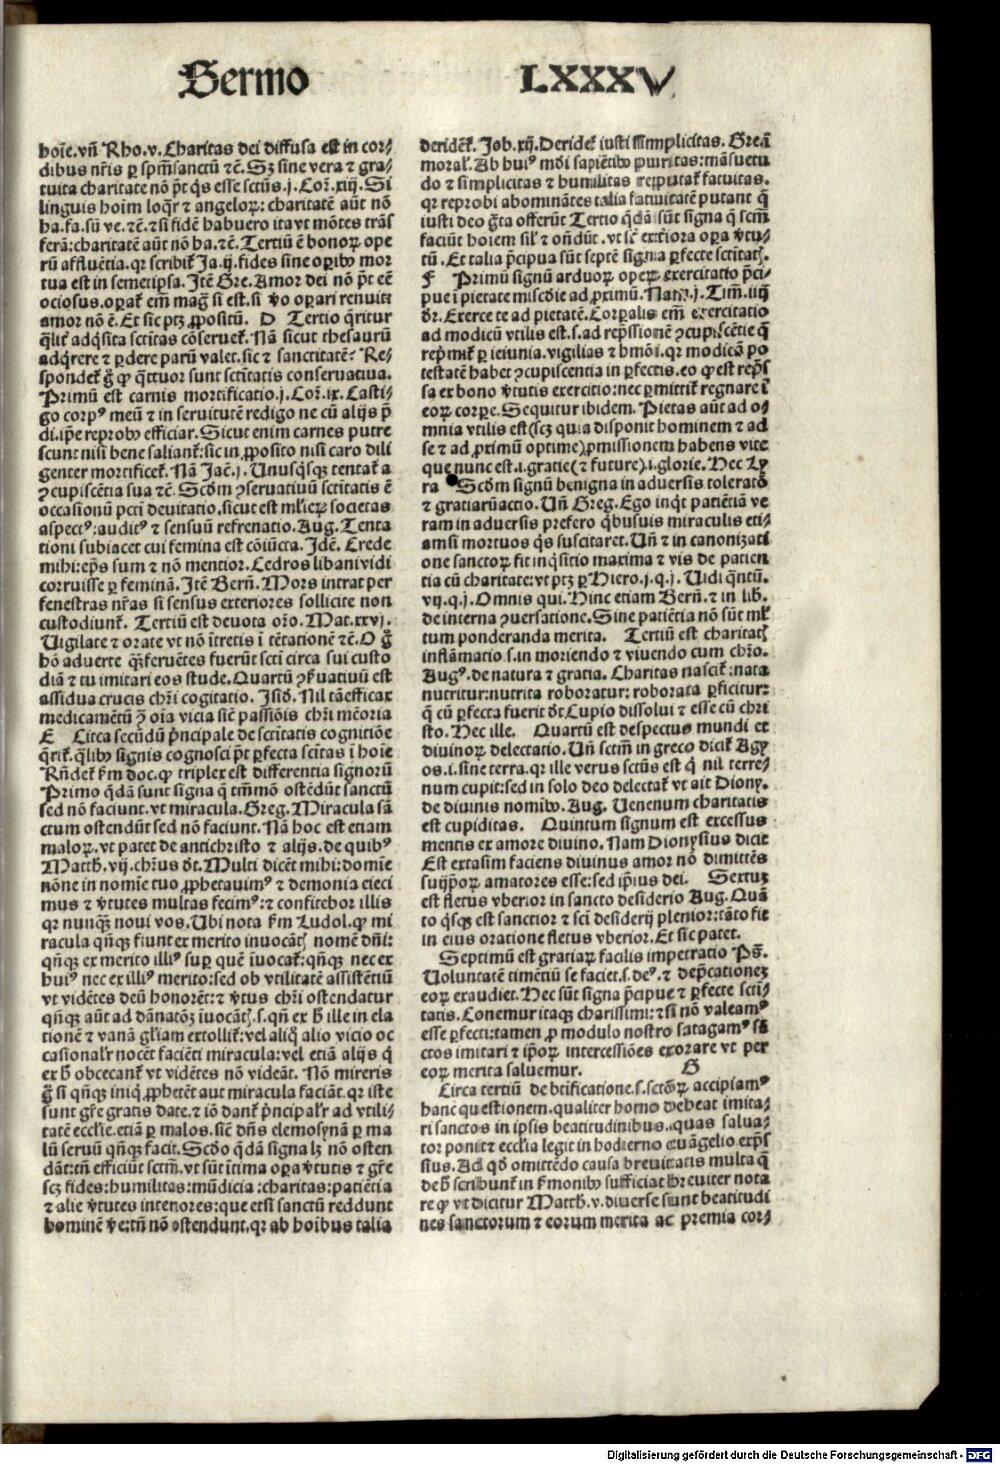 Sermo LXXXV
hoīe.vn̄ Rho.v. Charitas dei diffusa est in cor⸗
dibus nr̄is ꝑ spm̄sanctū ⁊c̄. Sꝫ sine vera ⁊ gra⸗
tuita charitate nō pōt qs esse sctūs.j. Cor̄.xiij. Si
linguis hoim̄ loqr̄ ⁊ angeloꝝ: charitatē aūt nō
ha.fa.sū ve.⁊c̄.⁊ si fidē habuero ita vt mōtes trās
ferā:charitatē aūt nō ha.⁊c̄. Tertiū ē bonoꝝ ope
rū affluētia.qr scribit̄ Ja.ij.fides sine oꝑibꝰ mor
tua est in semetip̄sa. Jtē Gre. Amor dei nō pōt eē
ociosus.operat̄ em̄ maḡ si est.si v̄o oꝑari renuit
amor nō ē. Et sic ptꝫ ꝓpositū. D Tertio q̄ritur
q̄lit̄ adq̄sita sctītas cōseruet̄. Nā sicut thesaurū
adq̄rere ⁊ ꝑdere parū valet.sic ⁊ sanctitatē? Re⸗
spondet̄ g̃ ꝙ q̄ttuor sunt sctītatis conseruatiua.
Primū est carnis mortificatio.j. Cor̄.ix. Casti⸗
go corpꝰ meū ⁊ in seruitutē redigo ne cū alijs p̄
di.ip̄e reprobꝰ efficiar. Sicut enim carnes putre
scunt nisi bene saliant̄:sic in ꝓposito nisi caro dili
genter mortificet̄. Nā Jac̄.j. Unusq̄sqꝫ tentat̄ a
ꝯcupiscētia sua ⁊c̄. Scdm̄ ꝯseruatiuū sctītatis ē
occasionū pctī deuitatio.sicut est mlieꝝ societas
aspectꝰ:auditꝰ ⁊ sensuū refrenatio. Aug. Tenta
tioni subiacet cui femina est cōiūcta. Jdē. Crede
mihi:ep̄s sum ⁊ nō mentior. Cedros libani vidi
corruisse ꝑ feminā. Jtē Bern̄. Mors intrat per
fenestras nr̄as si sensus exteriores sollicite non
custodiunt̄. Tertiū est deuota or̄o. Mat.xxvj.
Uigilate ⁊ orate vt nō ītretis ī tētationē ⁊c̄. O g̃
hō aduerte q̄ꝫferuētes fuerūt sctī circa sui custo
diā ⁊ tu imitari eos stude. Quartū ꝯẜuatiuū est
assidua crucis chr̄i cogitatio. Jsid̄. Nil tā efficax
medicamētū ꝯ̄ oīa vicia sic̄ passiōis chr̄i mēoria
E Circa secūdū p̄ncipale de sctītatis cognitiōe
q̄rit̄. q̄libꝰ signis cognosci pōt ꝑfecta sctītas ī hoīe
Rn̄det̄ ẜm doc.ꝙ triplex est differentia signorū
Primo q̄dā sunt signa q̄ tm̄mō ostēdūt sanctū
sed nō faciunt.vt miracula. Greg. Miracula sā
ctum ostendūt sed nō faciunt. Nā hoc est etiam
maloꝝ.vt patet de antichristo ⁊ alijs.de quibꝰ
Matth̄.vij.chr̄us dt̄. Multi dicēt mihi:domīe
nōne in nomīe tuo ꝓphetauimꝰ ⁊ demonia eieci
mus ⁊ v̄tutes multas fecimꝰ:⁊ confitebor illis
qr nunqꝫ noui vos. Ubi nota ẜm Ludol.ꝙ mi
racula qn̄qꝫ fiunt ex merito inuocātꝭ nomē dn̄i:
qn̄qꝫ ex merito illiꝰ suꝑ quē īuocat̄:qn̄qꝫ nec ex
huiꝰ nec ex illiꝰ merito:sed ob vtilitatē assistētiū
vt vidētes deū honorēt:⁊ v̄tus chr̄i ostendatur
qn̄qꝫ aūt ad dānatōꝫ iuocātꝭ.s.qn̄ ex h̄ ille in ela
tionē ⁊ vanā gl̄iam extollit̄:vel aliq̄ alio vicio oc
casional̄r nocēt faciēti miracula:vel etiā alijs q̄
ex h̄ obcecant̄ vt vidētes nō videāt. Nō mireris
g̃ si qn̄qꝫ iniq̄ ꝓphetēt aut miracula faciāt.qr iste
sunt gr̄e gratis date.⁊ iō dant̄ p̄ncipal̄r ad vtili⸗
tatē eccl̄ie.etiā ꝑ malos.sic̄ dn̄s elemosynā ꝑ ma
lū seruū qn̄qꝫ facit. Scdo q̄dā signa lꝫ nō osten
dāt:tn̄ efficiūt sctm̄.vt sūt ītima oꝑa v̄tutis ⁊ gr̄e
scꝫ fides:humilitas:mūdicia:charitas:patiētia
⁊ alie v̄tutes interiores:que etsi sanctū reddunt
hominē v̄e:tn̄ nō ostendunt.qr ab hoībus talia
deridēt̄. Job.xij. Deridet̄ iusti simplicitas. Gre.ī
moral̄. Ab huiꝰ mūdi sapiētibꝰ puritas:māsuetu
do ⁊ simplicitas ⁊ humilitas reputat̄ fatuitas.
qr reprobi abominātes talia fatuitatē putant q̄
iusti deo g̃ta offerūt Tertio q̄dā sūt signa q̄ sctm̄
faciūt hoiem sil̄ ⁊ on̄dūt.vt sc̄ exteriora oꝑa v̄tu⸗
tū. Et talia p̄cipua sūt septē signa ꝑfecte sctītatꝭ.
F Primū signū arduoꝝ oꝑeꝝ exercitatio p̄ci⸗
pue ī pietate miscd̄ie ad ꝓximū. Nam.j. Tim̄.iiij
dr̄. Exerce te ad pietatē. Corꝑalis em̄ exercitatio
ad modicū vtilis est.s.ad rep̄ssionē ꝯcupiscētie q̄
rep̄mit̄ ꝑ ieiunia.vigilias ⁊ hmōi.qr modicā po
testatē habet ꝯcupiscentia in ꝑfectis.eo ꝙ est rep̄s
sa ex bono v̄tutis exercitio:nec ꝑmittit̄ regnare ī
eoꝝ corꝑe. Sequitur ibidem. Pietas aūt ad o⸗
mnia vtilis est(scꝫ quia disponit hominem ⁊ ad
se ⁊ ad ꝓximū optime)ꝓmissionem habens vite
que nunc est.i.gratie(⁊ future).i.glorie. Hec Ly
ra Scdm̄ signū benigna in aduersis toleratō
⁊ gratiarūactio. Un̄ Greg. Ego inqt̄ patiētiā ve
ram in aduersis prefero q̄busuis miraculis eti⸗
amsi mortuos q̄s suscitaret. Un̄ ⁊ in canonizati
one sanctoꝝ fit inq̄sitio maxima ⁊ vis de patien
tia cū charitate:vt ptꝫ ꝑ Hiero.j.q.j. Uidi q̄ntū.
vij.q.j. Omnis qui. Hinc etiam Bern̄.⁊ in lib̄.
de interna ꝯuersatione. Sine patiētia nō sūt ml̄
tum ponderanda merita. Tertiū est charitatꝭ
inflāmatio.s.in moriendo ⁊ viuendo cum chr̄o.
Augꝰ.de natura ⁊ gratia. Charitas nascit̄:nata
nutritur:nutrita roboratur:roborata ꝑficitur:
q̄ cū ꝑfecta fuerit dt̄ Cupio dissolui ⁊ esse cū chri
sto. Hec ille. Quartū est despectus mundi et
diuinoꝝ delectatio. Un̄ sctm̄ in greco dicit̄ Agy
os.i.sine terra.qr ille verus sctūs est q̄ nil terre⸗
num cupit:sed in solo deo delectat̄ vt ait Diony.
de diuinis nomībꝰ. Aug. Uenenum charitatis
est cupiditas. Quintum signum est excessus
mentis ex amore diuino. Nam Dionysius dicit
Est extasim faciens diuinus amor nō dimittēs
suijp̄oꝝ amatores esse:sed ip̄ius dei. Sextuꝫ
est fletus vberior in sancto desiderio Aug. Quā
to q̄sqꝫ est sanctior ⁊ sctī desiderij plenior:tāto fit
in eius oratione fletus vberior. Et sic patet.
Septimū est gratiaꝝ facilis impetratio Ps̄.
Voluntatē timētiū se faciet.s.deꝰ.⁊ dep̄cationeꝫ
eoꝝ exaudiet. Hec sūt signa p̄cipue ⁊ ꝑfecte sctī⸗
tatis. Conemur itaqꝫ charissimi:⁊ si nō valeamꝰ
esse ꝑfecti:tamen ꝓ modulo nostro satagamꝰ sā
ctos imitari ⁊ ip̄oꝝ intercessiōes exorare vt per
eoꝝ merita saluemur. G
Circa tertiū de btificatione.s.sctōꝝ accipiamꝰ
hanc questionem.qualiter homo debeat imita⸗
ri sanctos in ipsis beatitudinibus.quas salua⸗
tor ponit ⁊ eccl̄ia legit in hodierno euāgelio exp̄s
sius. Ad qd̄ omittēdo causa breuitatis multa q̄
de h̄ scribunt̄ in ẜmonibꝰ sufficiat breuiter nota
re ꝙ vt dicitur Matth̄.v.diuerse sunt beatitudi
nes sanctorum ⁊ eorum merita ac premia cor⸗
Digitalisierung gefördert durch die Deutsche Forschungsgemeinschaft - DFG